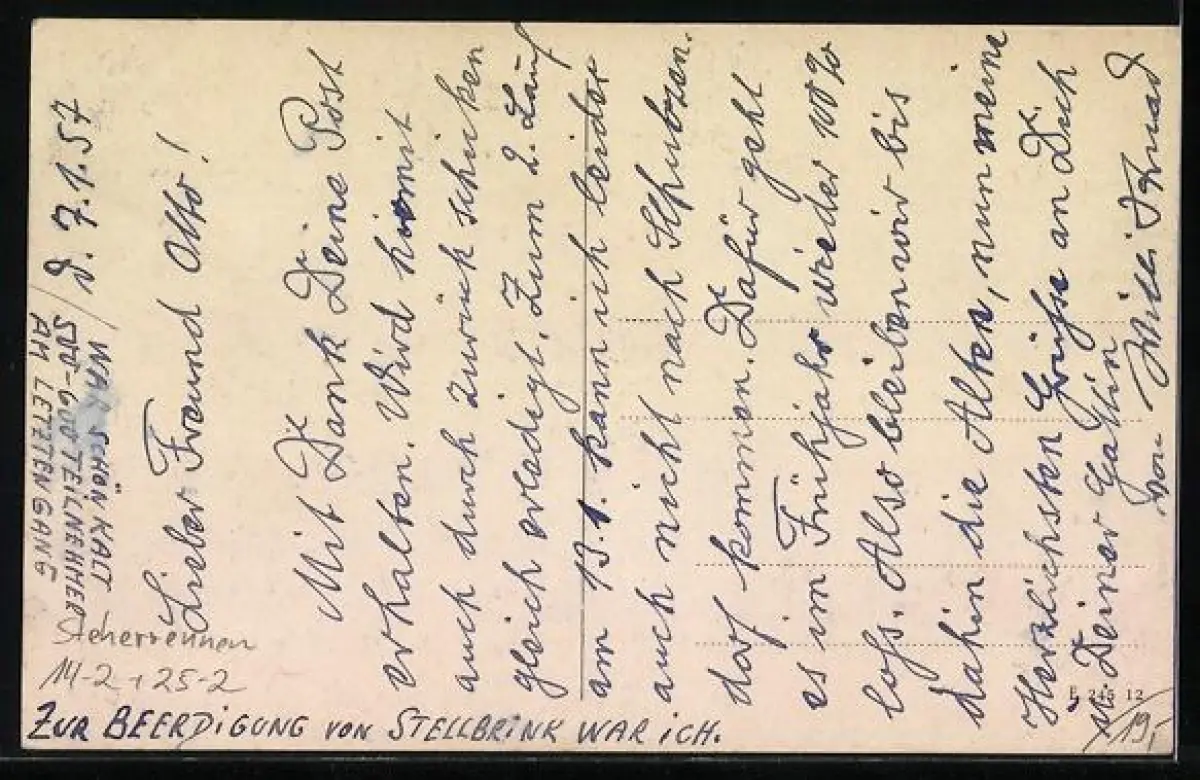 D. 7.1.57
Lieber Freund Otto!
Mit Dank Deine Post
erhalten. Wird hiermit
auch durch zurück schicken
gleich erledigt. Zum 2. Lauf
am 13.1. kann ich leider
auch nicht nach
dorf kommen. Dafür geht
es im Frühjahr wieder 100%
lohs. Also bleiben wir bis
dahin die Alten, nun meine
Herzlichsten Grüsse an Dich
u. Deiner Gattin
von Willi
ZUR BEERDIGUNG VON STELLBRINK WAR ICH.
WAR SCHÖN KALT
500-600 TEILNEHMER
AM LETZTEN GANG
Steherrennen
14-2 + 25-2
E 245 12
19,-